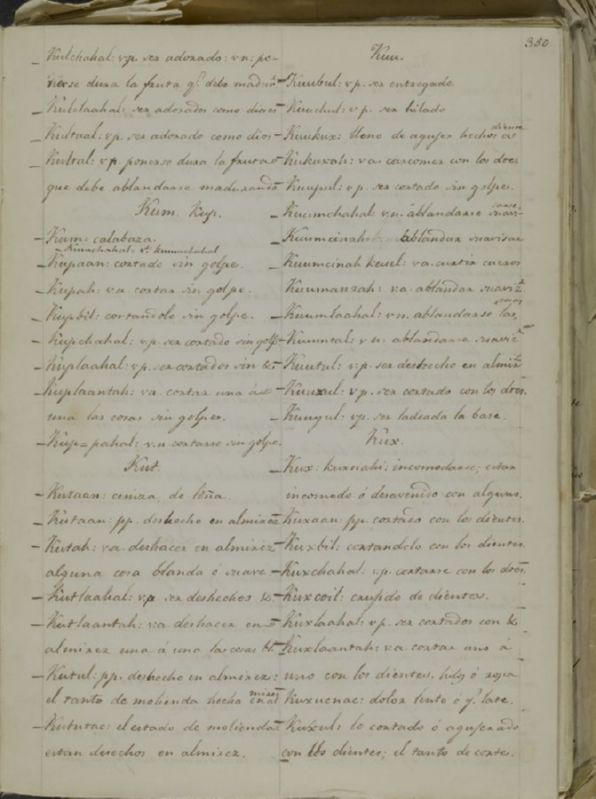 350
Kulchahal: vp. ser adorado: vn: po-
nerse dura la fruta q.e debe madur
Kululaahal: ser adorados como dioses
Kultaal: vp. ser adorado como dios
Kultal: vp. ponerse dura la fruta
que debe ablandarse madurando
Kum. Kup.
Kum: calabaza.
Kumchahal: vt. kuumchahal
Kupaan: cortado sin golpe.
Kupah: va. cortar sin golpe.
Kupbil: cortandolo sin golpe.
Kupchahal: vp. ser cortado sin golp
Kuplaahal: vp. ser cortados sin &
Kuplaantah: va. cortar una á
una las cosas sin golpes.
Kup=pahal: v.n cortarse sin golpe.
Kut.
Kutaan: ceniza de leña.
Kutaan: pp. deshecho en almirez
Kutah: va. deshacer en almirez
alguna cosa blanda ó suave
Kutlaahal: vp ser deshechos &
Kutlaantah: va. deshacer en
almirez una á una las cosas bl.
Kutul: pp. deshecho en almirez:
el tanto de molienda hecho en almirez
Kututac: el estado de molienda
estan desechos en almirez.
Kuu.
Kuubul: vp. ser entregado
Kuuchul: vp. ser hilado
Kuukux: lleno de agujer hechos á dientes
Kukuxah: va. carcomer con los dtes
Kuupul: vp. ser cortado sin golpe.
Kuumchahal v.n. ablandarse suavi-
Kuumcinah: ablandar suavisar
Kuumcinah keuel: va. curtir cueros
Kuumanzah: va. ablandar suaviz
Kuumlaahal: vn. ablandarse las cosas
Kuumtal: v n. ablandarse suaviz
Kuutul: vp. ser deshecho en almirz
Kuuxul: vp. ser cortado con los dtes.
Kuuyul: vp. ser ladeada la base.
Kux.
Kux: kuxnahi: incomodarse; estar
incomodo ó desavenido con alguno.
Kuxaan: pp. cortado con los dientes.
Kuxbil: cortandolo con los dientes
Kuxchahal: vp. cortarse con los dtes
Kuxcoil: crugido de dientes.
Kuxlaahal: vp. ser cortados con &
Kuxlaantah: va. cortar uno á
uno con los dientes, hilo ó soga
Kuxucnac: dolor lento ó q.e late.
Kuxul: lo cortado ó agujerado
con los dientes; el tanto de cortes.